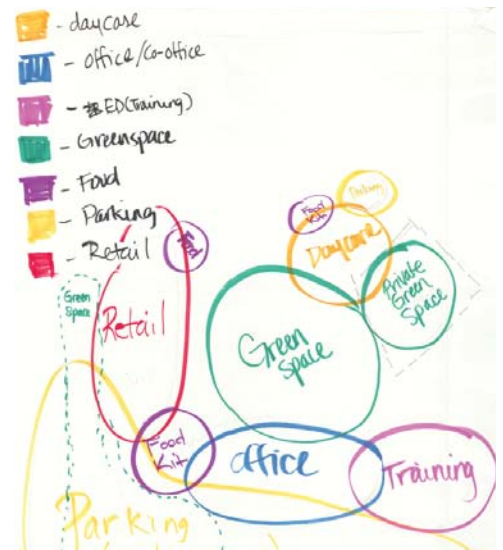 - daycare
- office/co-office
- ED(Training)
- Greenspace
- Food
- Parking
- Retail
Parking
Food
Kit
Daycare
Food
Green
Space
Private
Green
Space
Retail
Green
Space
Food
Kit
office
Training
Parking